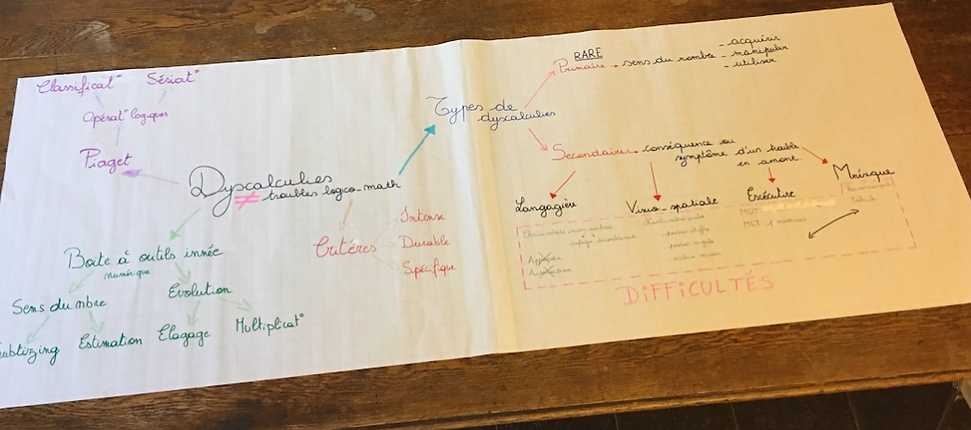 Classificat° Sériat°
Opérat° logiques
Piaget
Dyscalculies
≠ troubles logico-math
Boite à outils innée
numérique
Sens du nbre
Evolution
Subitizing Estimation Elagage Multiplicat°
Critères
Intense
Durable
Spécifique
Types de
dyscalculies
RARE
Primaire. sens du nombre
- acquérir
- manipuler
- utiliser
Secondaire. conséquence ou
symptôme d'un trouble
en amont.
Langagière
Visuo-spatiale
Exécutive
Mnésique
DIFFICULTÉS